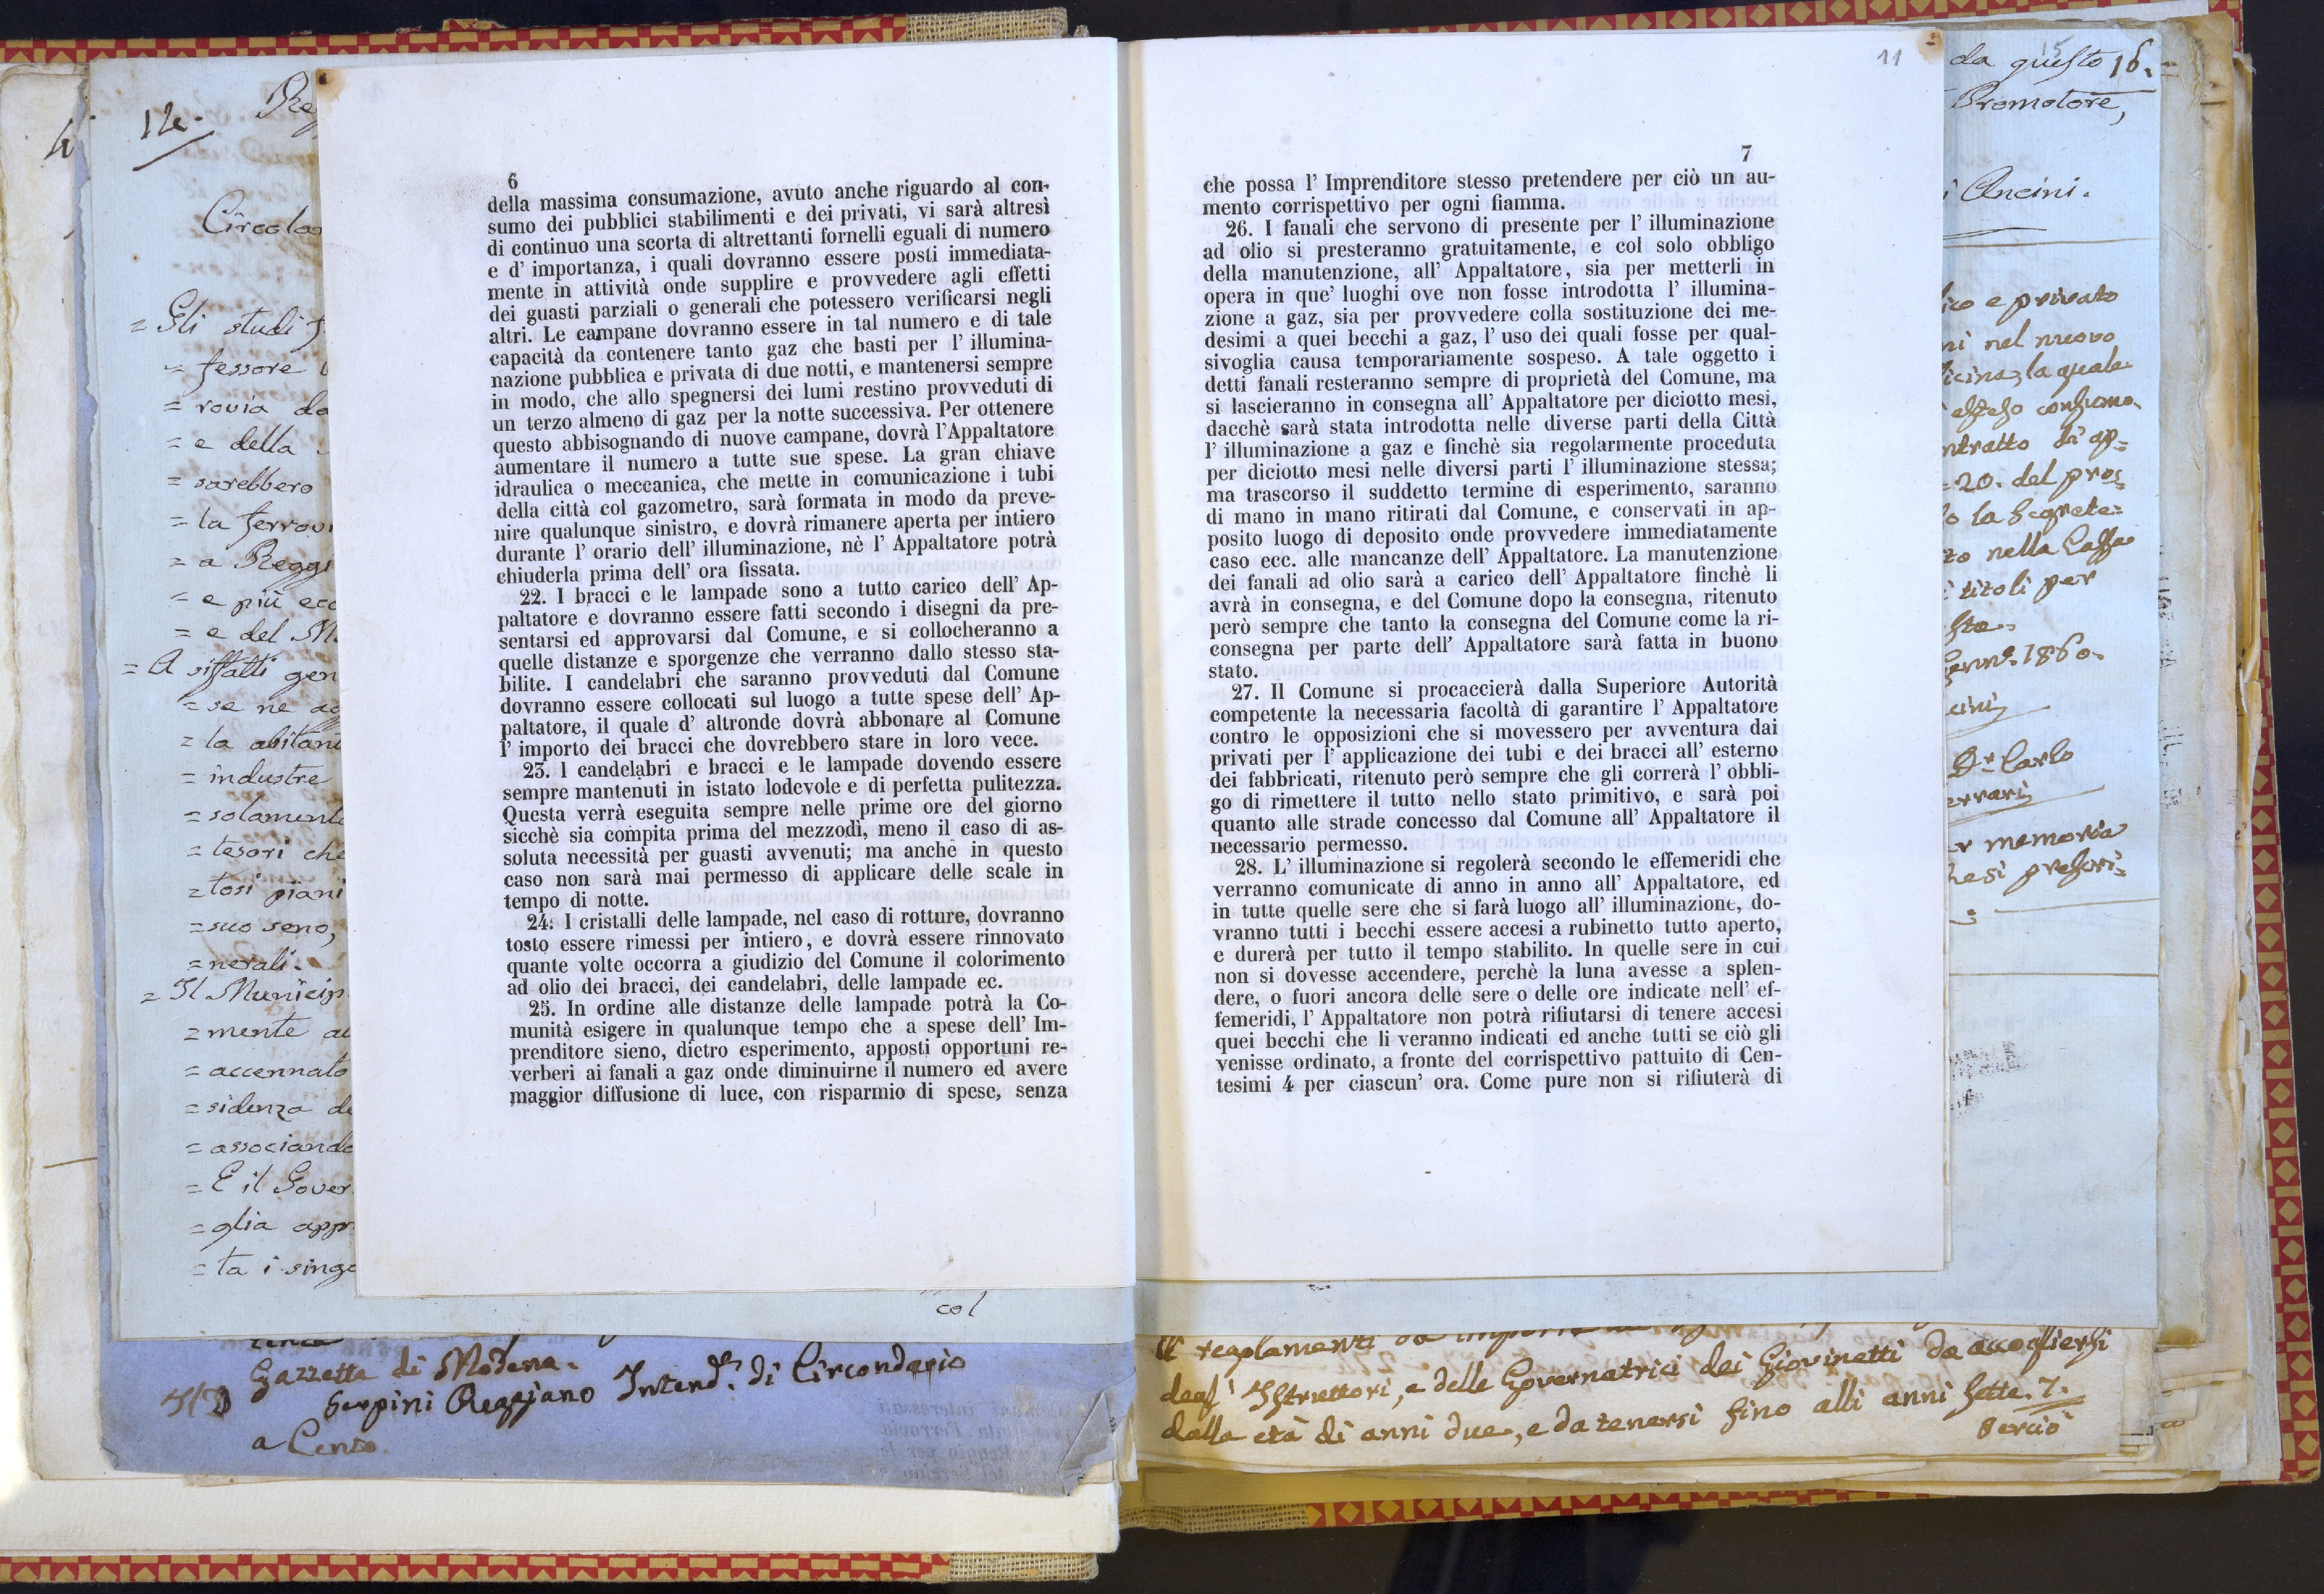 6
della massima consumazione, avuto anche riguardo al con-
sumo dei pubblici stabilimenti e dei privati, vi sarà altresì
di continuo una scorta di altrettanti fornelli eguali di numero
e d' importanza, i quali dovranno essere posti immediata-
mente in attività onde supplire e provvedere agli effetti
dei guasti parziali o generali che potessero verificarsi negli
altri. Le campane dovranno essere in tal numero e di tale
capacità da contenere tanto gaz che basti per l' illumina-
nazione pubblica e privata di due notti, e mantenersi sempre
in modo, che allo spegnersi dei lumi restino provveduti di
un terzo almeno di gaz per la notte successiva. Per ottenere
questo abbisognando di nuove campane, dovrà l'Appaltatore
aumentare il numero a tutte sue spese. La gran chiave
idraulica o meccanica, che mette in comunicazione i tubi
della città col gazometro, sarà formata in modo da preve-
nire qualunque sinistro, e dovrà rimanere aperta per intiero
durante l' orario dell' illuminazione, nè l' Appaltatore potrà
chiuderla prima dell' ora fissata.
22. I bracci e le lampade sono a tutto carico dell' Ap-
paltatore e dovranno essere fatti secondo i disegni da pre-
sentarsi ed approvarsi dal Comune, e si collocheranno a
quelle distanze e sporgenze che verranno dallo stesso sta-
bilite. I candelabri che saranno provveduti dal Comune
dovranno essere collocati sul luogo a tutte spese dell' Ap-
paltatore, il quale d' altronde dovrà abbonare al Comune
l' importo dei bracci che dovrebbero stare in loro vece.
23. I candelabri e bracci e le lampade dovendo essere
sempre mantenuti in istato lodevole e di perfetta pulitezza.
Questa verrà eseguita sempre nelle prime ore del giorno
sicchè sia compita prima del mezzodì, meno il caso di as-
soluta necessità per guasti avvenuti; ma anche in questo
caso non sarà mai permesso di applicare delle scale in
tempo di notte.
24. I cristalli delle lampade, nel caso di rotture, dovranno
tosto essere rimessi per intiero, e dovrà essere rinnovato
quante volte occorra a giudizio del Comune il colorimento
ad olio dei bracci, dei candelabri, delle lampade ec.
25. In ordine alle distanze delle lampade potrà la Co-
munità esigere in qualunque tempo che a spese dell' Im-
prenditore sieno, dietro esperimento, apposti opportuni re-
verberi ai fanali a gaz onde diminuirne il numero ed avere
maggior diffusione di luce, con risparmio di spese, senza
11
7
che possa l' Imprenditore stesso pretendere per ciò un au-
mento corrispettivo per ogni fiamma.
26. I fanali che servono di presente per l' illuminazione
ad olio si presteranno gratuitamente, e col solo obbligo
della manutenzione, all' Appaltatore, sia per metterli in
opera in que' luoghi ove non fosse introdotta l' illumina-
zione a gaz, sia per provvedere colla sostituzione dei me-
desimi a quei becchi a gaz, l' uso dei quali fosse per qual-
sivoglia causa temporariamente sospeso. A tale oggetto i
detti fanali resteranno sempre di proprietà del Comune, ma
si lascieranno in consegna all' Appaltatore per diciotto mesi,
dacchè sarà stata introdotta nelle diverse parti della Città
l' illuminazione a gaz e finchè sia regolarmente proceduta
per diciotto mesi nelle diversi parti l' illuminazione stessa;
ma trascorso il suddetto termine di esperimento, saranno
di mano in mano ritirati dal Comune, e conservati in ap-
posito luogo di deposito onde provvedere immediatamente
caso ecc. alle mancanze dell' Appaltatore. La manutenzione
dei fanali ad olio sarà a carico dell' Appaltatore finchè li
avrà in consegna, e del Comune dopo la consegna, ritenuto
però sempre che tanto la consegna del Comune come la ri-
consegna per parte dell' Appaltatore sarà fatta in buono
stato.
27. Il Comune si procaccierà dalla Superiore Autorità
competente la necessaria facoltà di garantire l' Appaltatore
contro le opposizioni che si movessero per avventura dai
privati per l' applicazione dei tubi e dei bracci all' esterno
dei fabbricati, ritenuto però sempre che gli correrà l' obbli-
go di rimettere il tutto nello stato primitivo, e sarà poi
quanto alle strade concesso dal Comune all' Appaltatore il
necessario permesso.
28. L' illuminazione si regolerà secondo le effemeridi che
verranno comunicate di anno in anno all' Appaltatore, ed
in tutte quelle sere che si farà luogo all' illuminazione, do-
vranno tutti i becchi essere accesi a rubinetto tutto aperto,
e durerà per tutto il tempo stabilito. In quelle sere in cui
non si dovesse accendere, perchè la luna avesse a splen-
dere, o fuori ancora delle sere o delle ore indicate nell' ef-
femeridi, l' Appaltatore non potrà rifiutarsi di tenere accesi
quei becchi che li veranno indicati ed anche tutti se ciò gli
venisse ordinato, a fronte del corrispettivo pattuito di Cen-
tesimi 4 per ciascun' ora. Come pure non si rifiuterà di
= Gli studi
= fessore
= rovia
= e della
= sarebbero
= la ferrov
= a Reggi
= e più
= e del
= A siffatti gen
= se ne
= la abitan
= industre
= solament
= tesori che
= tosi piani
= suo seno,
= nerali.
= Il Municip
= mente
= accennato
= sidenza
= associando
= E il Gover
= glia app
= ta i sing
col
Gazzetta di Modena.
Serpini Reggiano Intend.e di Circondario
a Cento
15
da questo 16.
Promotore,
Ancini.
e privato
nel nuovo
la quale
20. del
nella Cassa
titoli per
1860.
Dr Carlo
memoria
regolamenti
degl' Istruttori, e delle Governatrici dei Giovinetti da accogliersi
dalla età di anni due, e da tenersi fino alli anni sette. 7.
Perciò